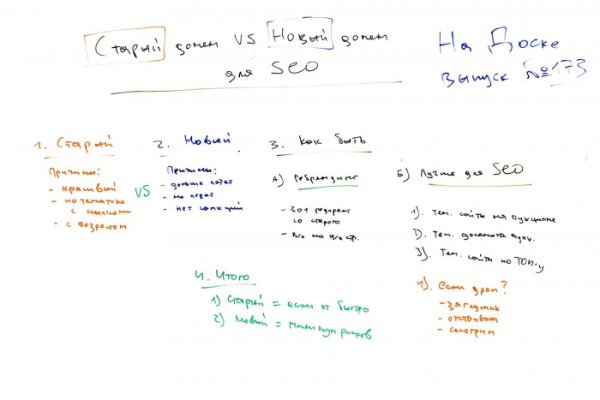 Старый домен VS Новый домен
для SEO
На Доске
выпуск №173
1. Старый
Причины:
- красивый
- по тематике
с ссылками
- с возрастом
VS
2. Новый
Причины:
- дольше
- не
- нет санкций
3. Как быть
А) Ребрендинг
- 301 редирект
со старого
- Все на все стр.
Б) Лучше для SEO
1). Тем. сайты на аукционе
2). Тем. домены
3). Тем. сайты по ТОП-у
4). Если дроп?
- заглушка
- отстаиваем
- смотрим
4. Итого
1) Старый = если ок быстро
2) Новый = минимум рисков